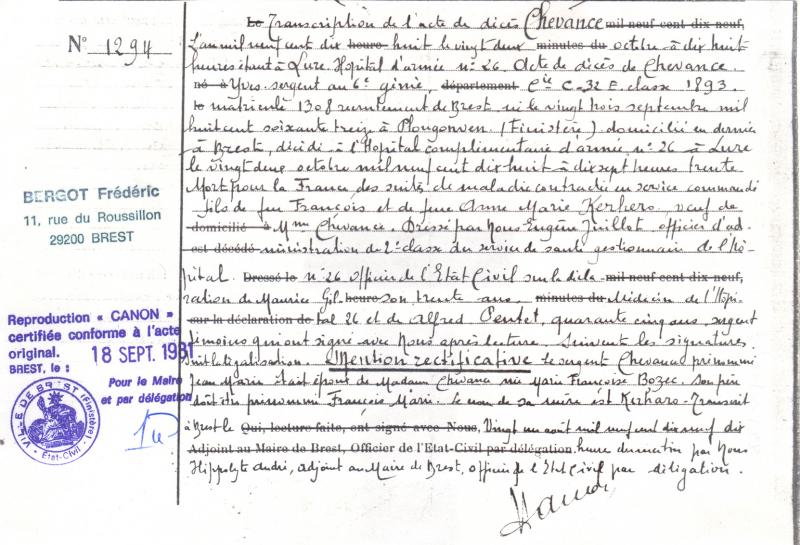 N° 1294
Le Transcription de l'acte de décès Chevance mil neuf cent dix neuf,
L'an mil neuf cent dix heure huit le vingt deux minutes du octobre à dix huit
heures étant à Lure Hopital d'armée n° 26. Acte de décès de Chevance.
né à Yves sergent au 6e génie, département Cie C. 32 E. classe 1893.
le matricule 1308 recrutement de Brest, né le vingt trois septembre mil
huit cent soixante treize à Plougonven (Finistère) domicilié en dernier
à Brest, décédé à l'Hopital complémentaire d'armée n° 26 à Lure
le vingt deux octobre mil neuf cent dix huit à dix sept heures trente
Mort pour la France des suites de maladie contractée en service commandé
fils de feu François et de feue Anne Marie Kerhero, veuf de
domicilié à Mme Chevance. Dressé par Nous Eugène Juillot, officier d'ad-
est décédé ministration de 2e classe du service de santé gestionnaire de l'Hô-
pital. Dressé le n° 26 officier de l'Etat Civil sur la décla- mil neuf cent dix neuf,
ration de Maurice Gil- heure son trente ans, minutes du Médecin de l'Hopi-
sur la déclaration de tal 26 et de Alfred Pentet, quarante cinq ans, sergent
témoins qui ont signé avec Nous après lecture. Suivent les signatures.
Suit la légalisation. Mention rectificative le sergent Chevance prénommé
Jean Marie était époux de Madame Chevance née Marie Françoise Bozec. Son père
doit être prénommé François Marie. le nom de sa mère est Kerharo. Transcrit
à Brest le Qui, lecture faite, ont signé avec Nous, Vingt un août mil neuf cent dix neuf dix
Adjoint au Maire de Brest, Officier de l'Etat-Civil par délégation, heure du matin par Nous
Hippolyte André, adjoint au Maire de Brest, officier de l'Etat Civil par délégation.
BERGOT Frédéric
11, rue du Roussillon
29200 BREST
Reproduction « CANON »
certifiée conforme à l'acte
original.
BREST, le : 18 SEPT. 1981
Pour le Maire
et par délégation
VILLE DE BREST (Finistère) Etat-Civil